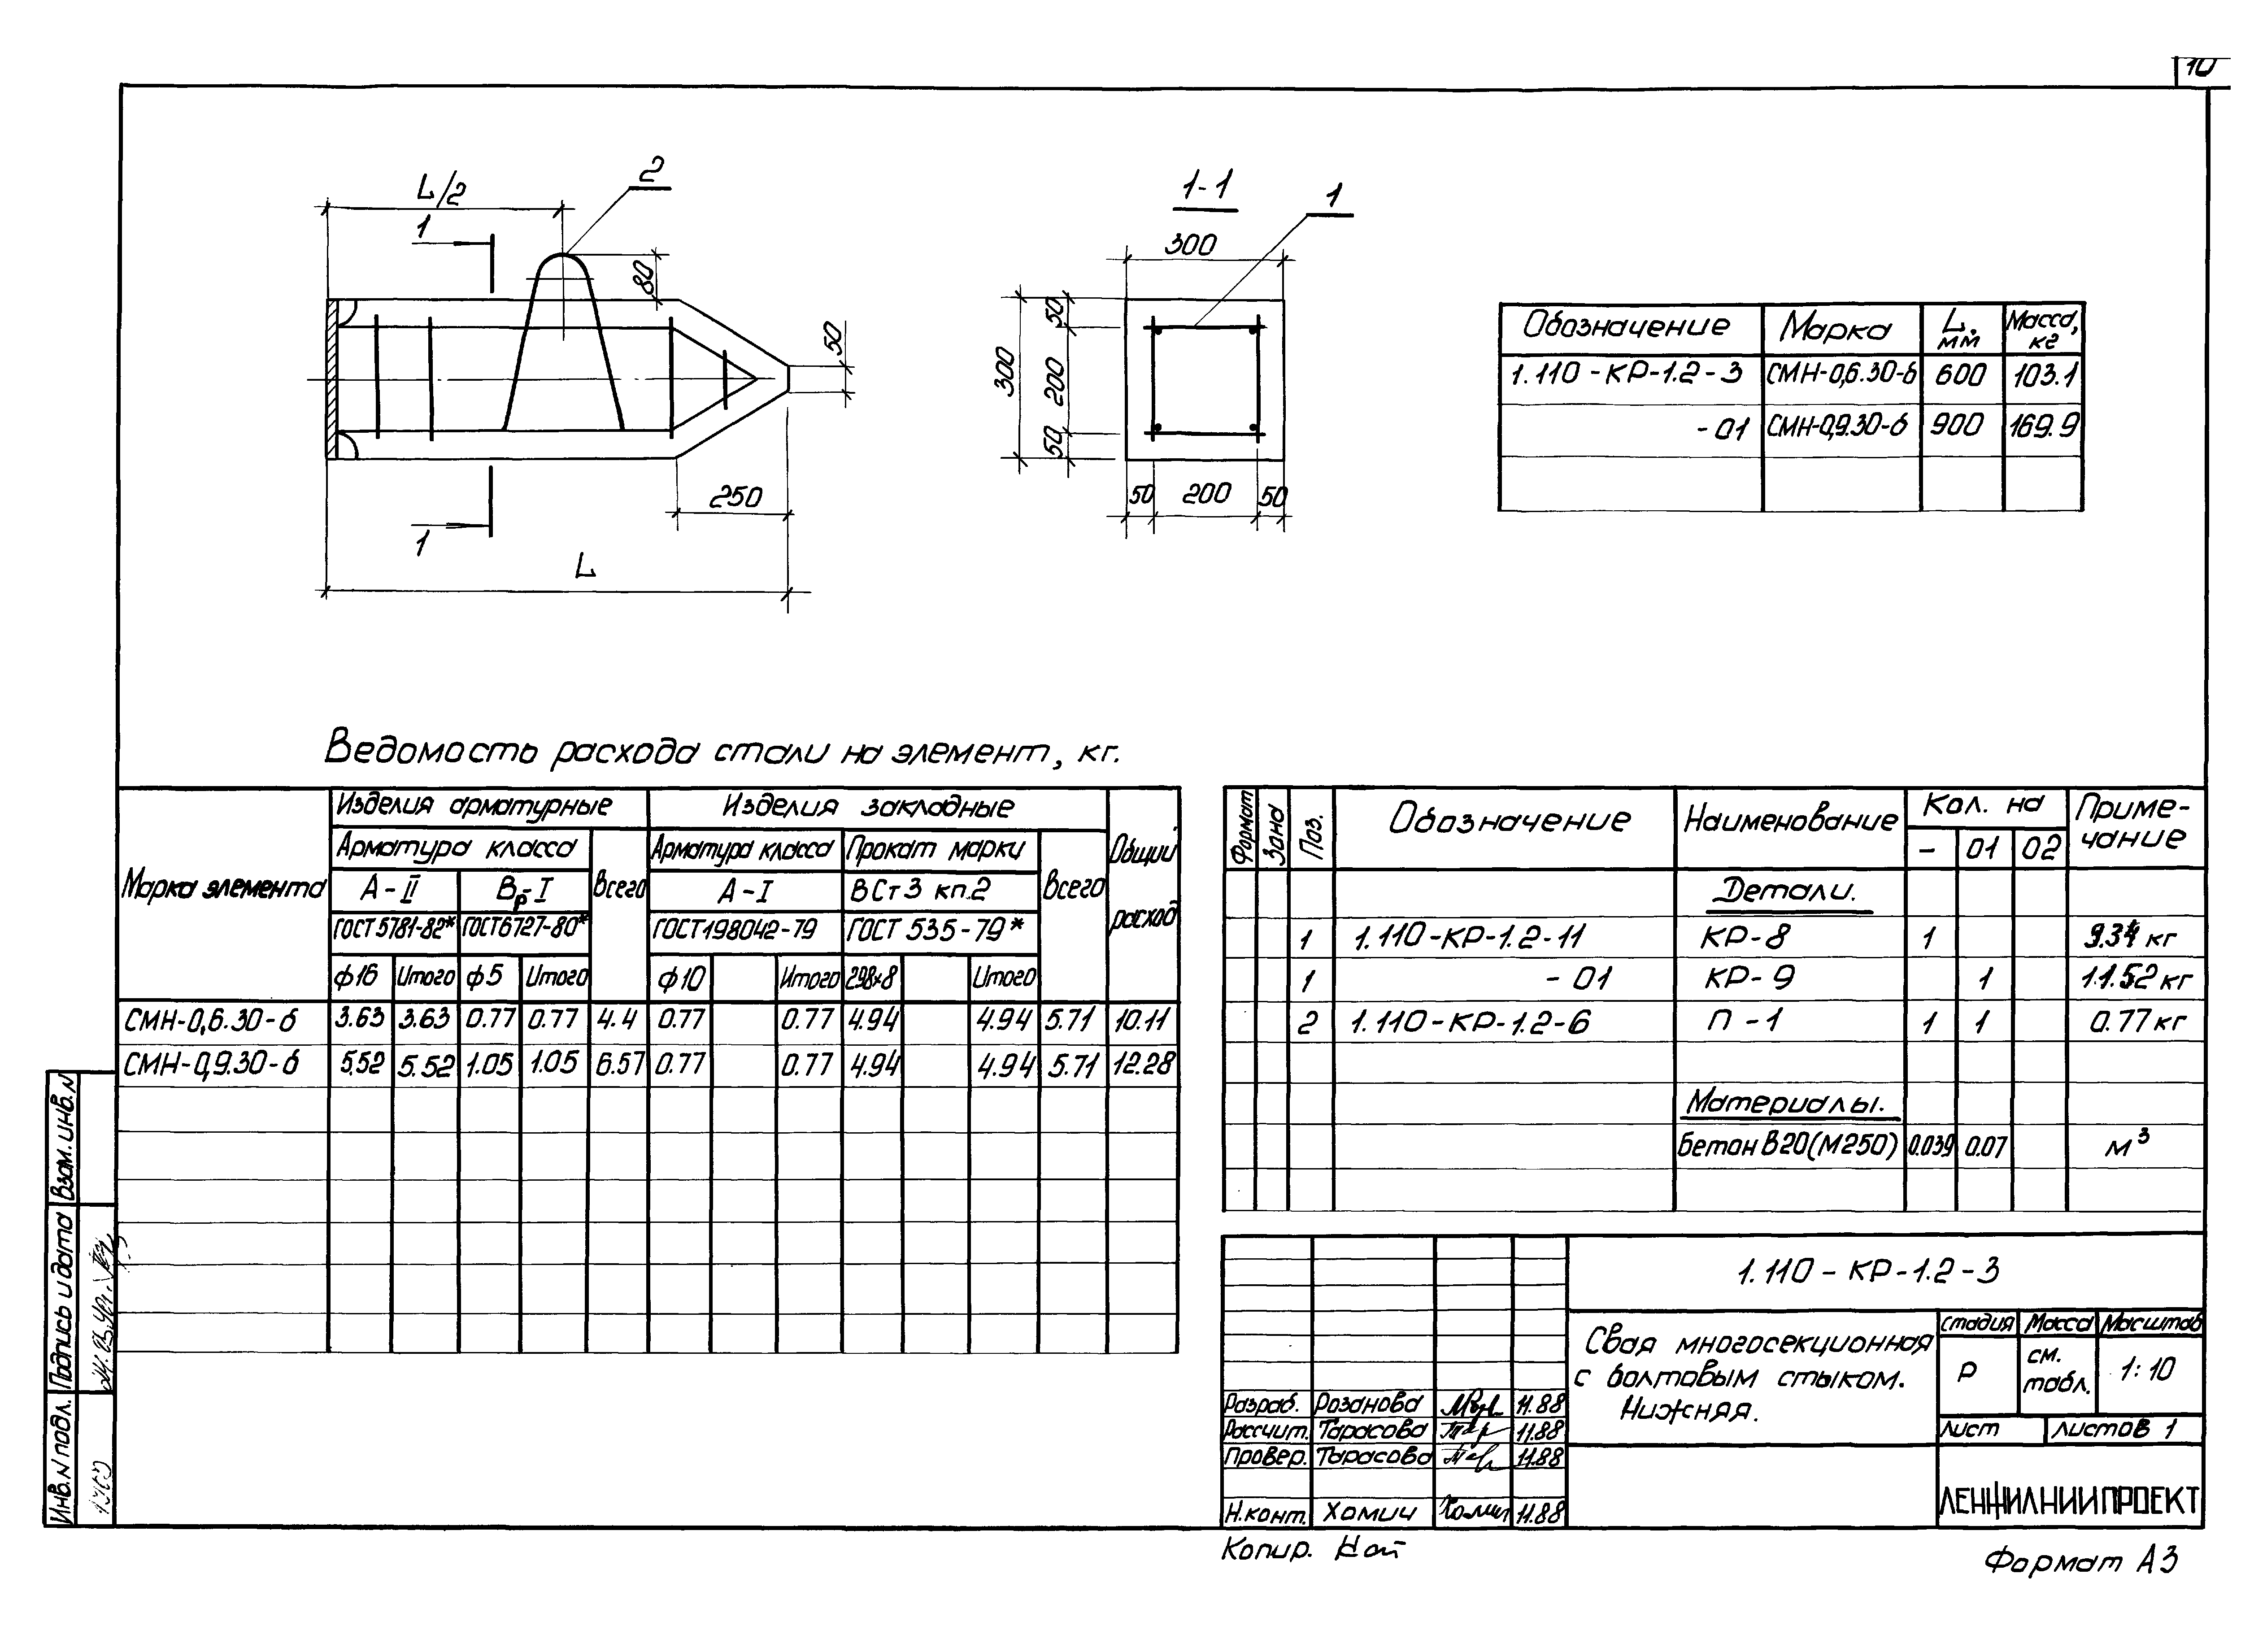 10
L/2
2
1
80
50
250
1
L
1-1
1
300
300
50
200
50
50
200
50
Обозначение Марка L, мм Масса, кг
1.110-КР-1.2-3 СМН-0,6.30-б 600 103.1
-01 СМН-0,9.30-б 900 169.9
Ведомость расхода стали на элемент, кг.
Марка элемента Изделия арматурные Изделия закладные Общий расход
Арматура класса Всего Арматура класса Прокат марки Всего
А-II Вр-I А-I ВСт3 кп.2
ГОСТ 5781-82* ГОСТ6727-80* ГОСТ198042-79 ГОСТ 535-79*
ф16 Итого ф5 Итого ф10 Итого 298х8 Итого
СМН-0,6.30-б 3.63 3.63 0.77 0.77 4.4 0.77 0.77 4.94 4.94 5.71 10.11
СМН-0,9.30-б 5.52 5.52 1.05 1.05 6.57 0.77 0.77 4.94 4.94 5.71 12.28
Формат Зона Поз. Обозначение Наименование Кол. на Приме-
чание
- 01 02
Детали.
1 1.110-КР-1.2-11 КР-8 1 9.34 кг
1 -01 КР-9 1 11.52 кг
2 1.110-КР-1.2-6 П-1 1 1 0.77 кг
Материалы.
Бетон В20(М250) 0.039 0.07 м³
1.110-КР-1.2-3
Свая многосекционная
с болтовым стыком.
Нижняя.
Стадия Масса Масштаб
Р см. табл. 1:10
Лист Листов 1
ЛЕНЖИЛНИИПРОЕКТ
Разраб. Розанова 11.88
Рассчит. Тарасова 11.88
Провер. Тарасова 11.88
Н.конт. Хомич 11.88
Копир.
Формат А3
Взам. инв. N
Подпись и дата
Инв. N подл.